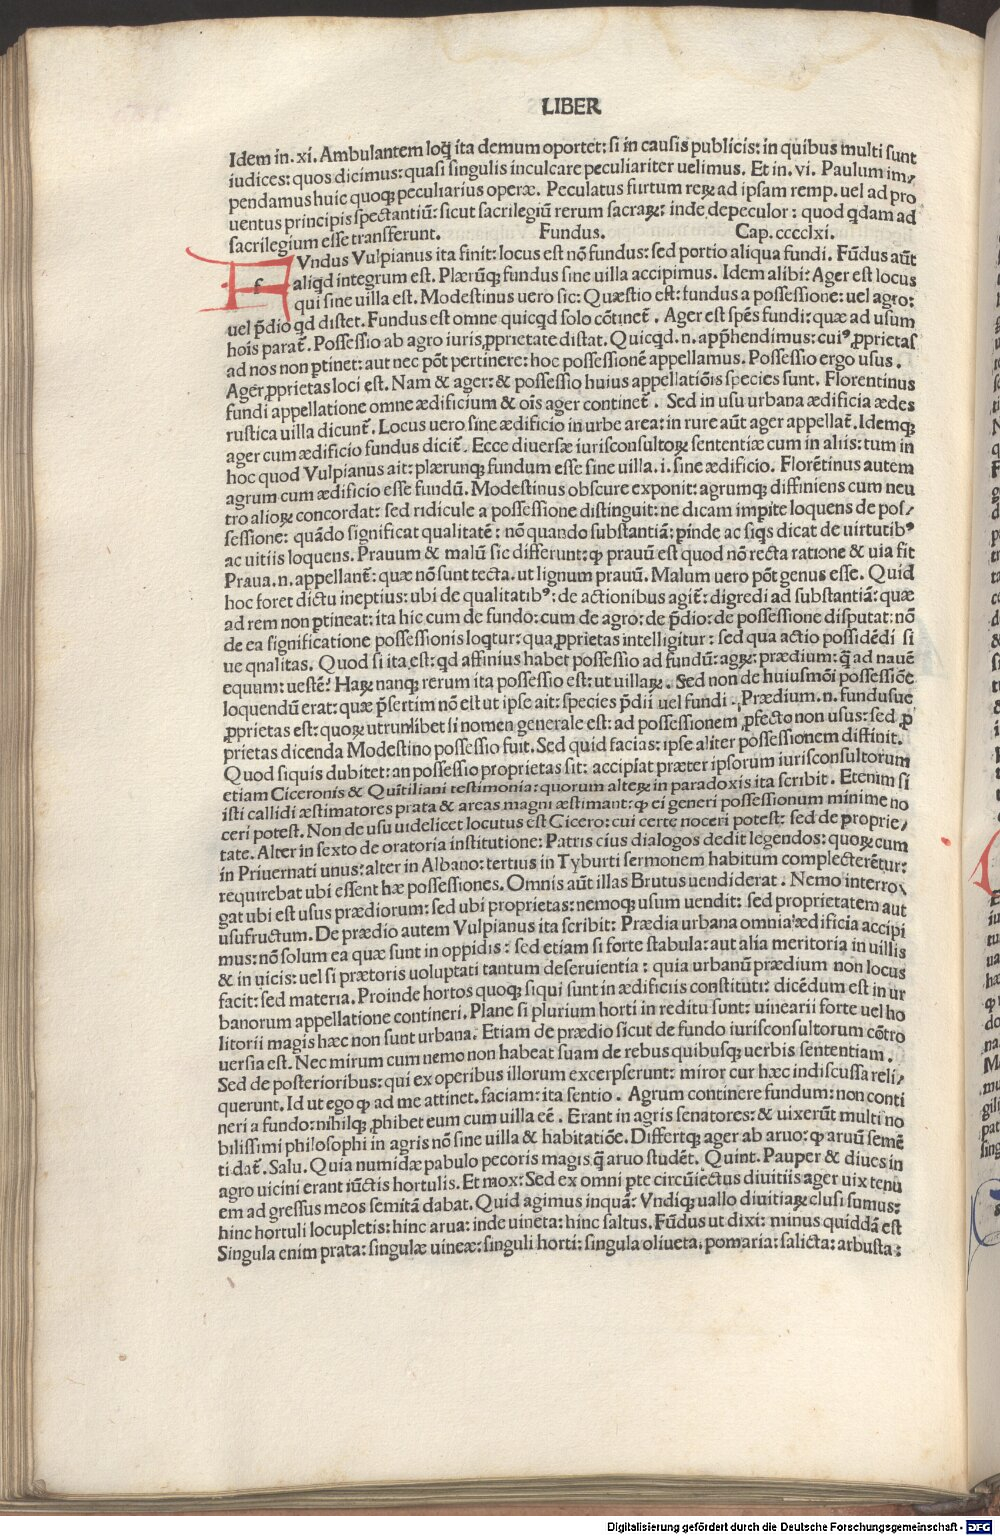 LIBER
Idem in. xi. Ambulantem loq̃ ita demum oportet: si in causis publicis: in quibus multi sunt
iudices: quos dicimus: quasi singulis inculcare peculiariter uelimus. Et in. vi. Paulum im/
pendamus huic quoqꝫ peculiarius operæ. Peculatus furtum reꝝ ad ipsam remp. uel ad pro
uentus principis spectantiũ: sicut sacrilegiũ rerum sacraꝝ: inde depeculor: quod qdam ad
sacrilegium esse transferunt. Fundus. Cap. cccclxi.
f VNdus Vulpianus ita finit: locus est nõ fundus: sed portio aliqua fundi. Fũdus aũt
aliqd integrum est. Plærũqꝫ fundus sine uilla accipimus. Idem alibi: Ager est locus
qui sine uilla est. Modestinus uero sic: Quæstio est: fundus a possessione: uel agro:
uel p̃dio qd distet. Fundus est omne quicqd solo cõtinet̃. Ager est spẽs fundi: quæ ad usum
hoĩs parat̃. Possessio ab agro iuris ꝓprietate distat. Quicqd. n. app̃hendimus: cuiꝰ ꝓprietas
ad nos non ꝑtinet: aut nec põt pertinere: hoc possessionẽ appellamus. Possessio ergo usus.
Ager ꝓprietas loci est. Nam & ager: & possessio huius appellatiõis species sunt. Florentinus
fundi appellatione omne ædificium & oĩs ager continet̃. Sed in usu urbana ædificia ædes
rustica uilla dicunt̃. Locus uero sine ædificio in urbe area: in rure aũt ager appellat̃. Idemqꝫ
ager cum ædificio fundus dicit̃. Ecce diuersæ iurisconsultoꝝ sententiæ cum in aliis: tum in
hoc quod Vulpianus ait: plærunqꝫ fundum esse sine uilla. i. sine ædificio. Florẽtinus autem
agrum cum ædificio esse fundũ. Modestinus obscure exponit: agrumqꝫ diffiniens cum neu
tro alioꝝ concordat: sed ridicule a possessione distinguit: ne dicam impite loquens de pos/
sessione: quãdo significat qualitatẽ: nõ quando substantiã: ꝑinde ac siqs dicat de uirtutibꝰ
ac uitiis loquens. Prauum & malũ sic differunt: ꝙ prauũ est quod nõ recta ratione & uia fit
Praua. n. appellant̃: quæ nõ sunt tecta. ut lignum prauũ. Malum uero põt genus esse. Quid
hoc foret dictu ineptius: ubi de qualitatibꝰ: de actionibus agit̃: digredi ad substantiã: quæ
ad rem non ꝑtineat: ita hic cum de fundo: cum de agro: de p̃dio: de possessione disputat: nõ
de ea significatione possessionis loqtur: qua ꝓprietas intelligitur: sed qua actio possidẽdi si
ue qnalitas. Quod si ita est: qd affinius habet possessio ad fundũ: agꝝ: prædium: q̃ ad nauẽ
equum: uestẽ? Haꝝ nanqꝫ rerum ita possessio est: ut uillaꝝ. Sed non de huiusmõi possessiõe
loquendũ erat: quæ p̃sertim nõ est ut ipse ait: species p̃dii uel fundi. Prædium. n. fundusue
ꝓprietas est: quoꝝ utrunlibet si nomen generale est: ad possessionem ꝓfecto non usus: sed ꝓ
prietas dicenda Modestino possessio fuit. Sed quid facias: ipse aliter possessionem distinit.
Quod siquis dubitet: an possessio proprietas sit: accipiat præter ipsorum iurisconsultorum
etiam Ciceronis & Quĩtiliani testimonia: quorum alteꝝ in paradoxis ita scribit. Etenim si
isti callidi æstimatores prata & areas magni æstimant: ꝙ ei generi possessionum minime no
ceri potest. Non de usu uidelicet locutus est Cicero: cui certe noceri potest: sed de proprie/
tate. Alter in sexto de oratoria institutione: Patris cius dialogos dedit legendos: quoꝝ cum
in Priuernati unus: alter in Albano: tertius in Tyburti sermonem habitum complecterẽtur:
requirebat ubi essent hæ possessiones. Omnis aũt illas Brutus uendiderat. Nemo interro\
gat ubi est usus prædiorum: sed ubi proprietas: nemoqꝫ usum uendit: sed proprietatem aut
usufructum. De prædio autem Vulpianus ita scribit: Prædia urbana omnia ædificia accipi
mus: nõ solum ea quæ sunt in oppidis: sed etiam si forte stabula: aut alia meritoria in uillis
& in uicis: uel si prætoris uoluptati tantum deseruientia: quia urbanũ prædium non locus
facit: sed materia. Proinde hortos quoqꝫ siqui sunt in ædificiis constituti: dicẽdum est in ur
banorum appellatione contineri. Plane si plurium horti in reditu sunt: uinearii forte uel ho
litorii magis hæc non sunt urbana. Etiam de prædio sicut de fundo iurisconsultorum cõtro
uersia est. Nec mirum cum nemo non habeat suam de rebus quibusqꝫ uerbis sententiam.
Sed de posterioribus: qui ex operibus illorum excerpserunt: miror cur hæc indiscussa reli/
querunt. Id ut ego ꝙ ad me attinet. faciam: ita sentio. Agrum continere fundum: non conti
neri a fundo: nihilqꝫ ꝓhibet eum cum uilla eẽ. Erant in agris senatores: & uixerũt multi no
bilissimi philosophi in agris nõ sine uilla & habitatiõe. Differtqꝫ ager ab aruo: ꝙ aruũ semẽ
ti dat̃. Salu. Quia numidæ pabulo pecoris magis q̃ aruo studẽt. Quint. Pauper & diues in
agro uicini erant iũctis hortulis. Et mox: Sed ex omni pte circũiectus diuitiis ager uix tenu
em ad gressus meos semitã dabat. Quid agimus inquã: Vndiqꝫ uallo diuitiaꝝ clusi sumus:
hinc hortuli locupletis: hinc arua: inde uineta: hinc saltus. Fũdus ut dixi: minus quiddã est
Singula enim prata: singulæ uineæ: singuli horti: singula oliueta. pomaria: salicta: arbusta:
Digitalisierung gefördert durch die Deutsche Forschungsgemeinschaft - DFG